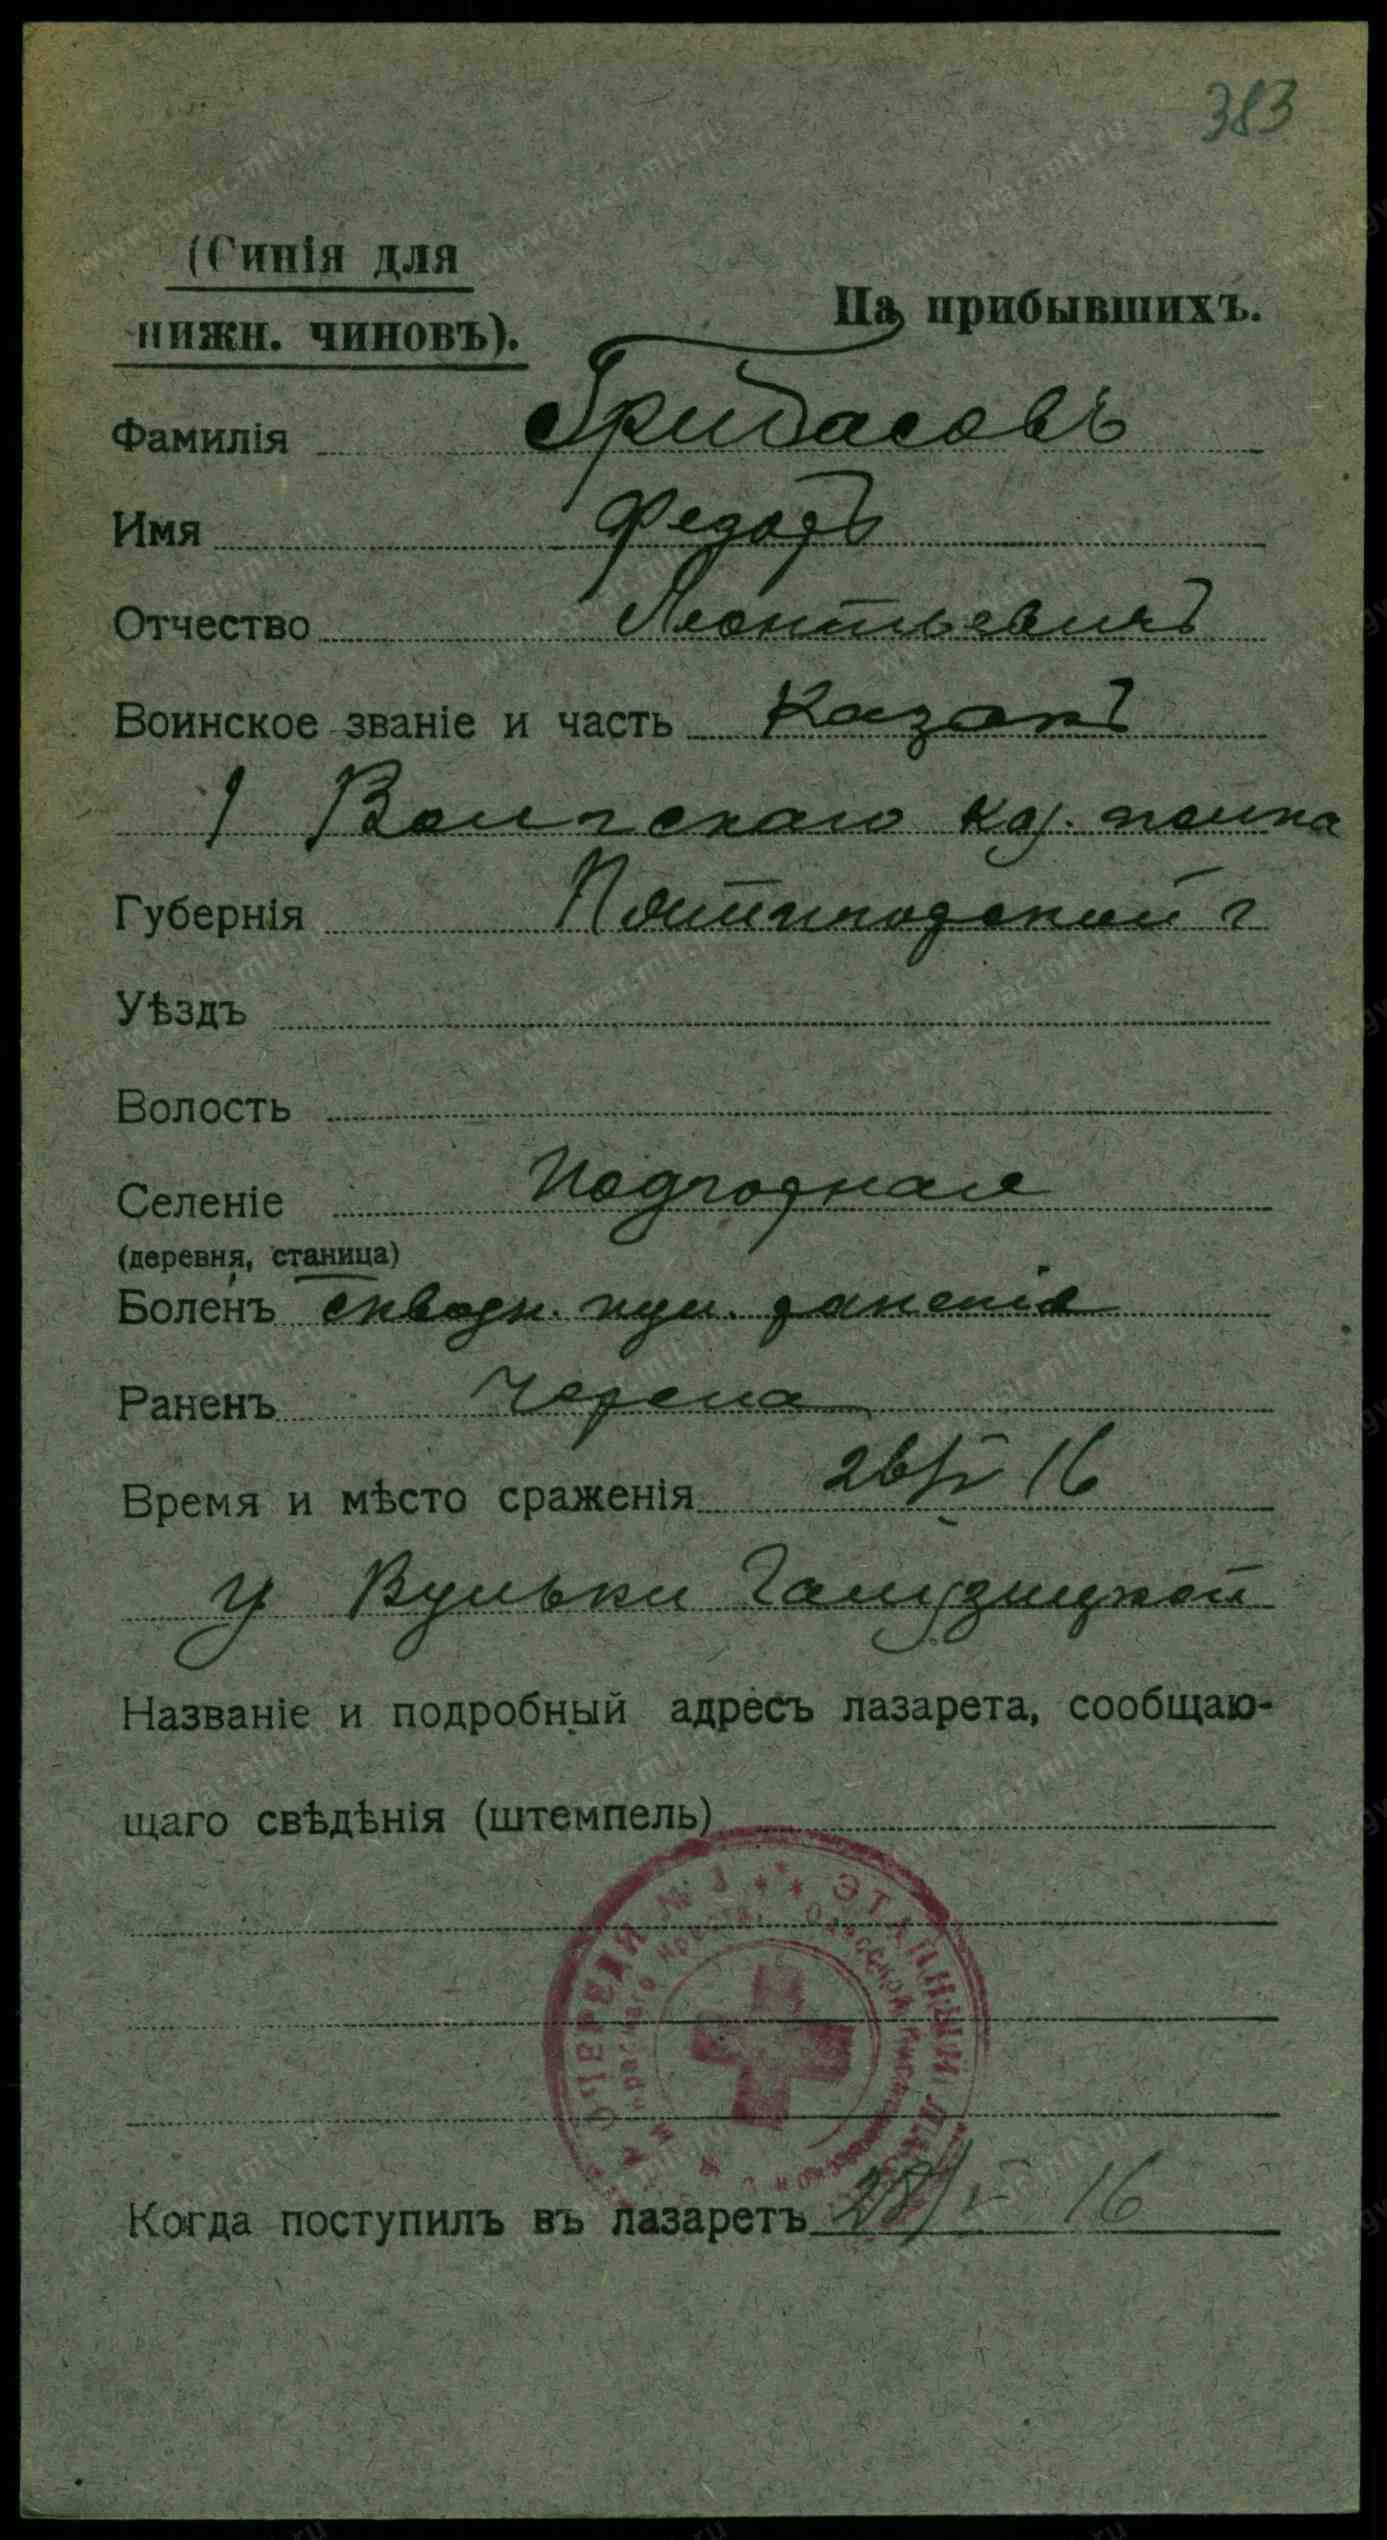 383
(Синія для
нижн. чиновъ).
На прибывшихъ.
Фамилія Грибасовъ
Имя Федоръ
Отчество Леонтьевичъ
Воинское званіе и часть Казакъ
1 Волгскаго каз. полка
Губернія Пятигорской г
Уѣздъ
Волость
Селеніе Подгорная
(деревня, станица)
Боленъ сквозн. пул. раненія
Раненъ черепа
Время и мѣсто сраженія 26/V 16
у Вульки Галузицкой
Названіе и подробный адресъ лазарета, сообщаю-
щаго свѣдѣнія (штемпель)
ЭТАПНЫЙ ЛАЗ
ОЧЕРЕДИ № 3
Краснаго Креста
Одесской
Когда поступилъ въ лазаретъ 28/V 16
www.gwar.mil.ru